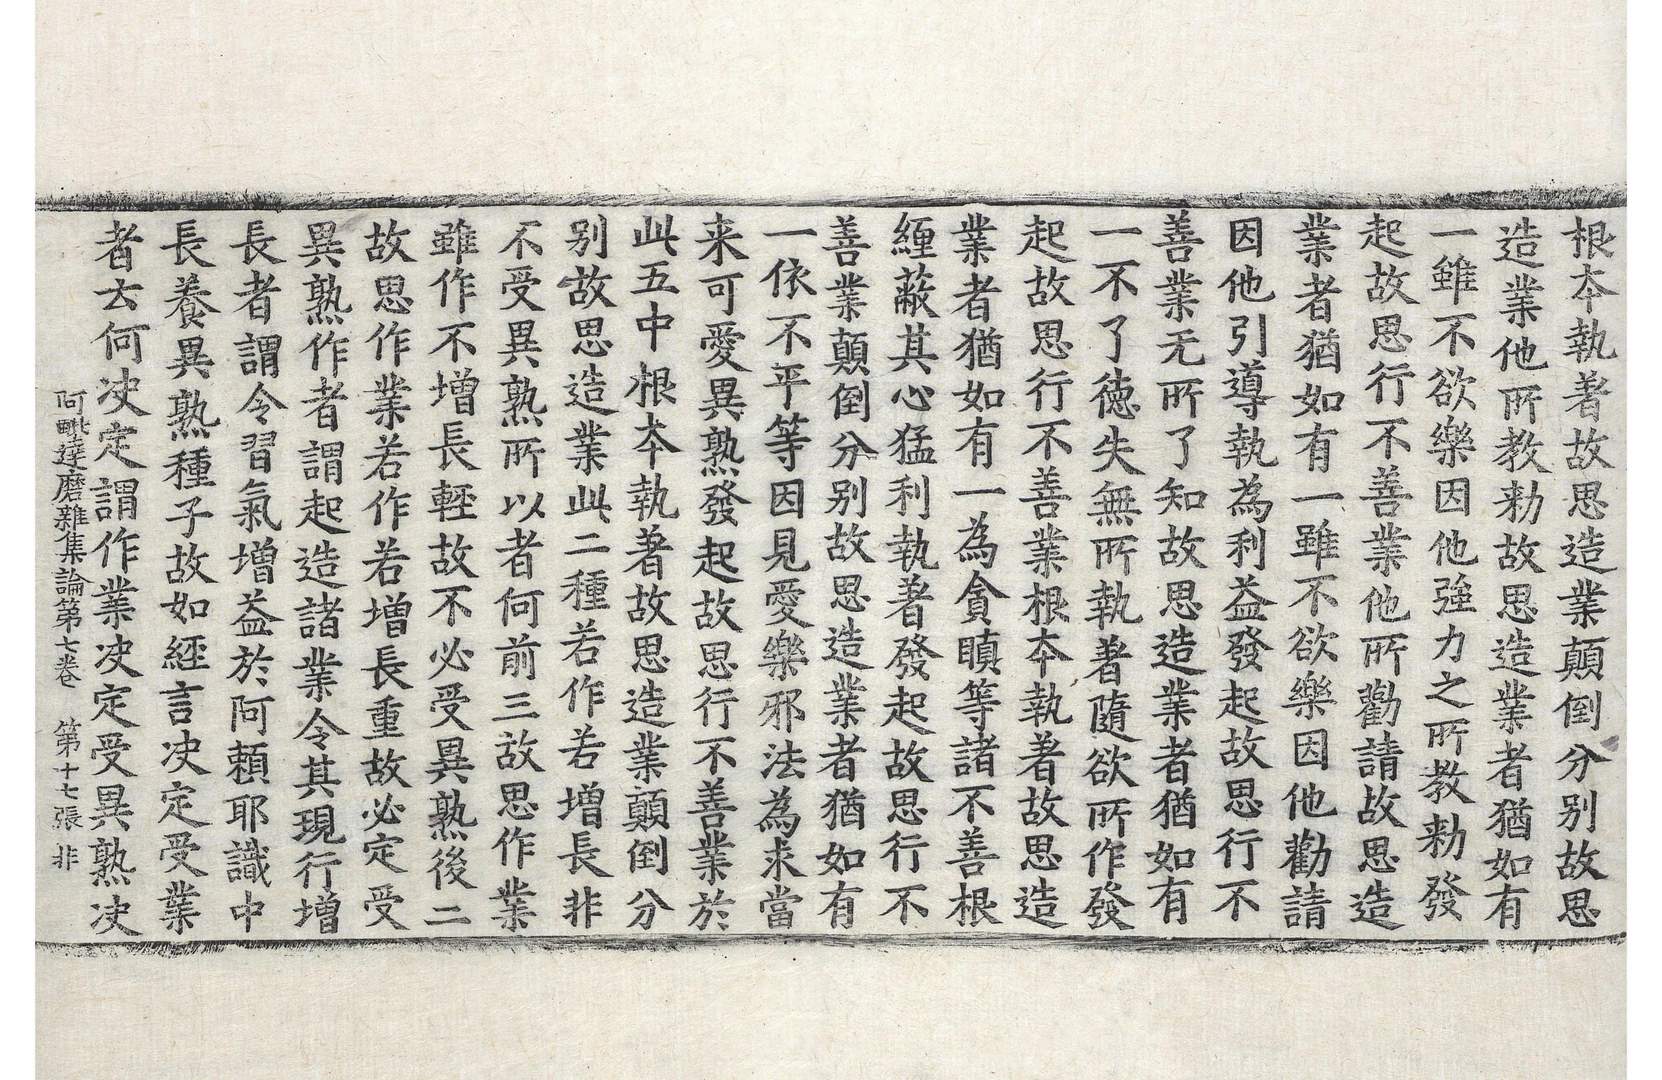 根本執著故思造業顛倒分別故思
造業他所教勑故思造業者猶如有
一雖不欲樂因他強力之所教勑發
起故思行不善業他所勸請故思造
業者猶如有一雖不欲樂因他勸請
因他引導執為利益發起故思行不
善業无所了知故思造業者猶如有
一不了德失無所執著隨欲所作發
起故思行不善業根本執著故思造
業者猶如有一為貪瞋等諸不善根
纏蔽其心猛利執著發起故思行不
善業顛倒分別故思造業者猶如有
一依不平等因見愛樂邪法為求當
来可愛異熟發起故思行不善業於
此五中根本執著故思造業顛倒分
別故思造業此二種若作若增長非
不受異熟所以者何前三故思作業
雖作不增長輕故不必受異熟後二
故思作業若作若增長重故必定受
異熟作者謂起造諸業令其現行增
長者謂令習氣增益於阿頼耶識中
長養異熟種子故如經言决定受業
者云何决定謂作業决定受異熟决
阿毗達磨雜集論第七卷　第十七張　非